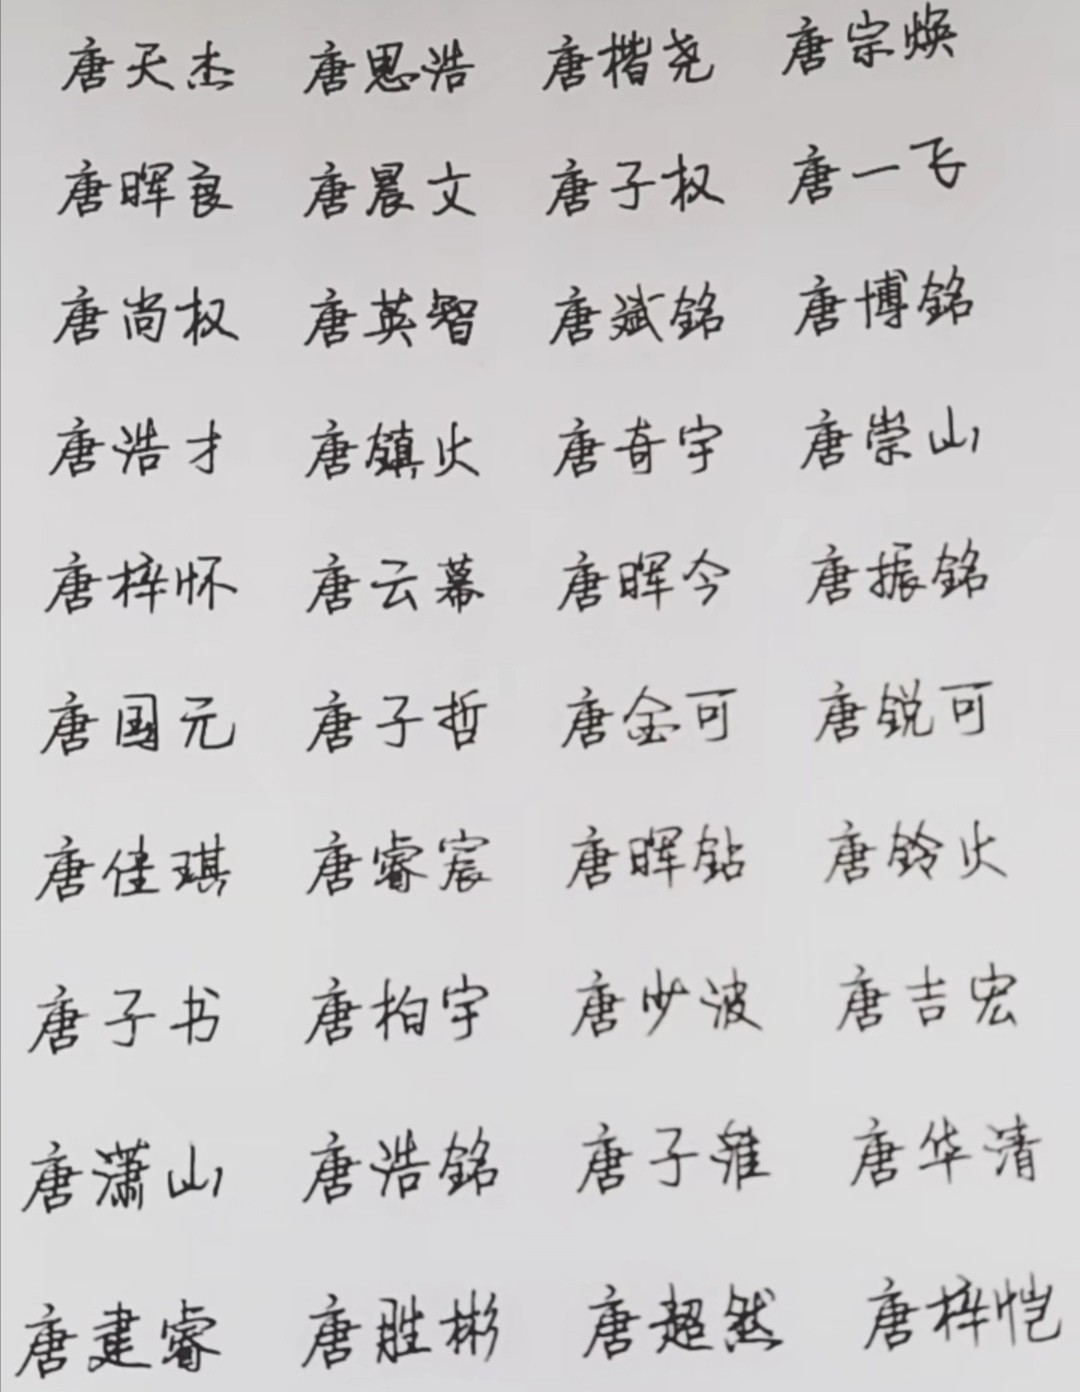 唐天杰 唐思浩 唐楷尧 唐宗焕
唐晖良 唐晨文 唐子权 唐一飞
唐尚权 唐英智 唐斌铭 唐博铭
唐浩才 唐镇火 唐奇宇 唐崇山
唐梓怀 唐云幕 唐晖今 唐振铭
唐国元 唐子哲 唐金可 唐锐可
唐佳琪 唐睿宸 唐晖钻 唐铃火
唐子书 唐柏宇 唐少波 唐吉宏
唐潇山 唐浩铭 唐子淮 唐华清
唐建睿 唐胜彬 唐超然 唐梓恺